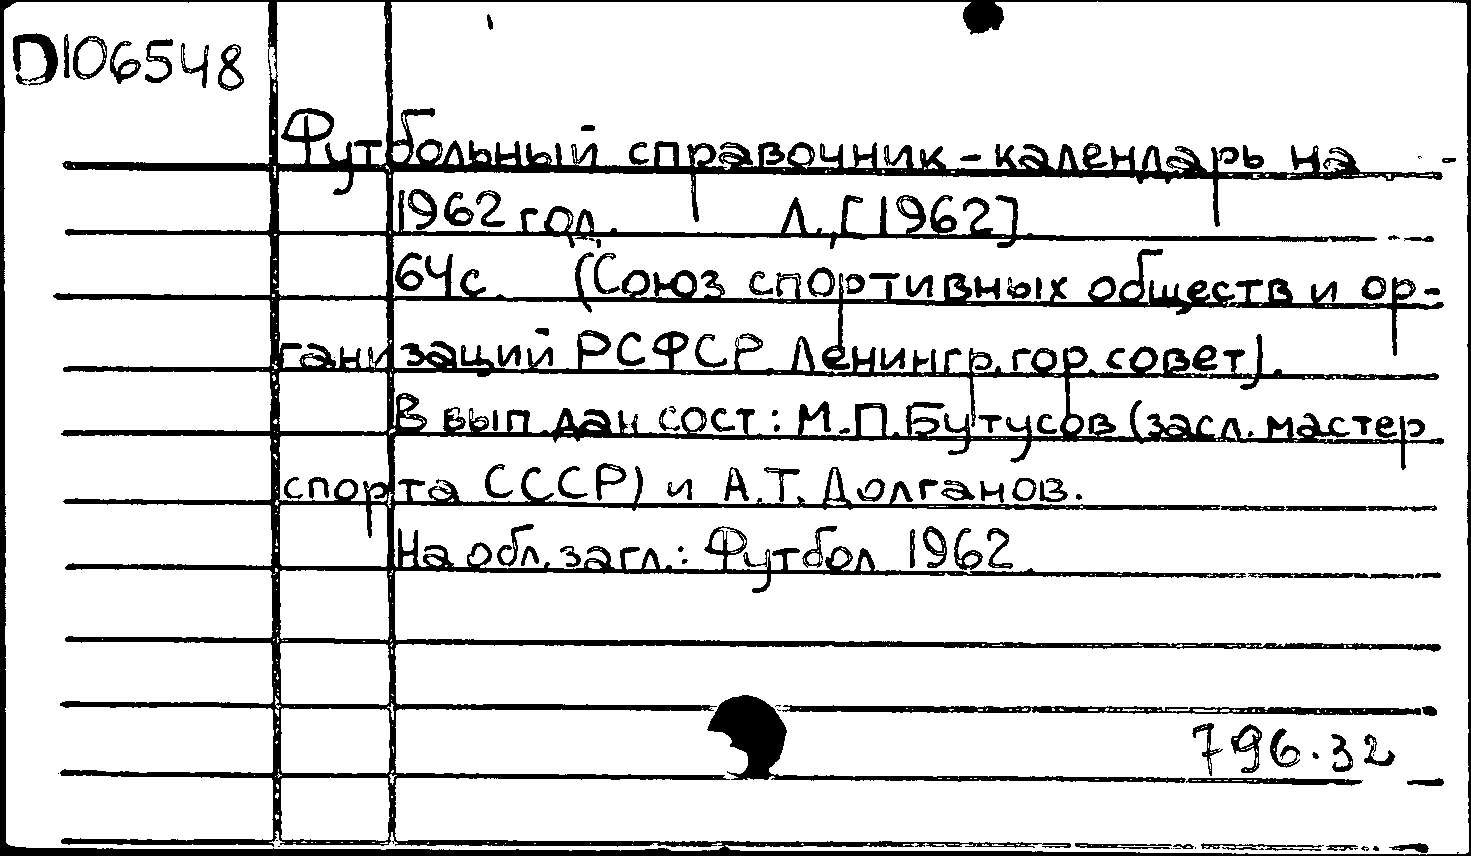 D106548
Футбольный справочник-календарь на
1962 год. Л., [1962].
64с. (Союз спортивных обществ и ор-
ганизаций РСФСР. Ленингр. гор. совет).
В вып. дан сост: М.П.Бутусов (засл. мастер
спорта СССР) и А.Т. Долганов.
На обл. загл.: Футбол 1962.
796.32